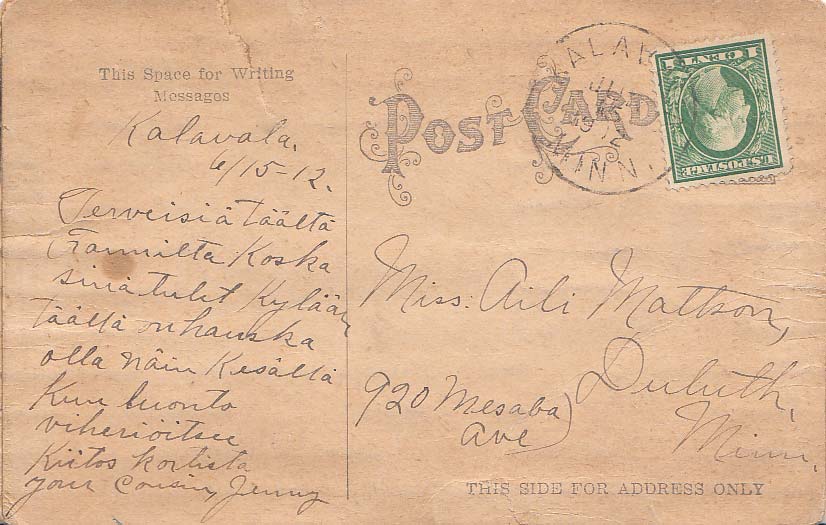 This Space for Writing
Messages
Kalavala.
6/15-12.
Terveisiä täältä
Koska
sinä tulet Kylään
täällä on hauska
olla näin Kesällä
Kun luonto
viheriöitsee
Kiitos kortista
your Cousin, Jenny
POST CARD
KALAV
JU
MINN.
1 CENT 1
U.S. POSTAGE
Miss. Aili Mattson,
Duluth,
Minn.
920 Mesaba
Ave
THIS SIDE FOR ADDRESS ONLY